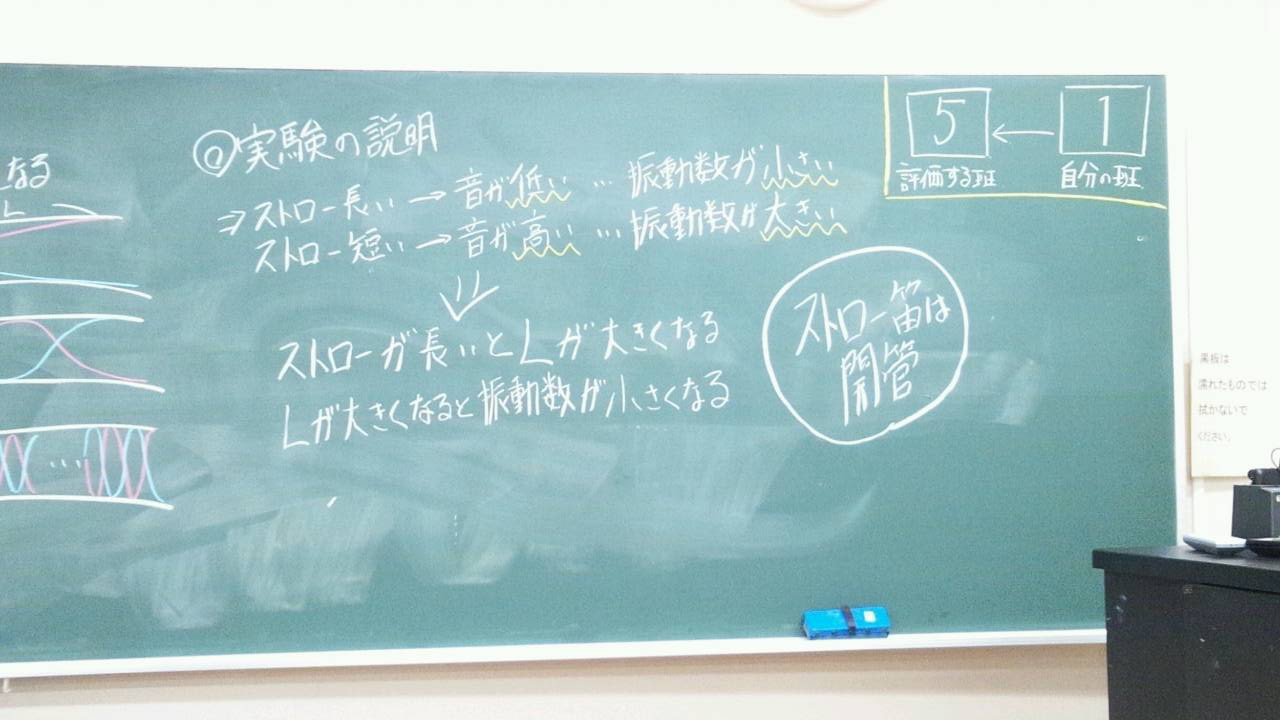 なる
◎実験の説明
⇒ストロー長い → 音が低い … 振動数が小さい
ストロー短い → 音が高い … 振動数が大きい
ストローが長いとLが大きくなる
Lが大きくなると振動数が小さくなる
ストロー笛は
開管
5 ← 1
評価する班 自分の班
黒板は
濡れたものでは
拭かないで
ください。